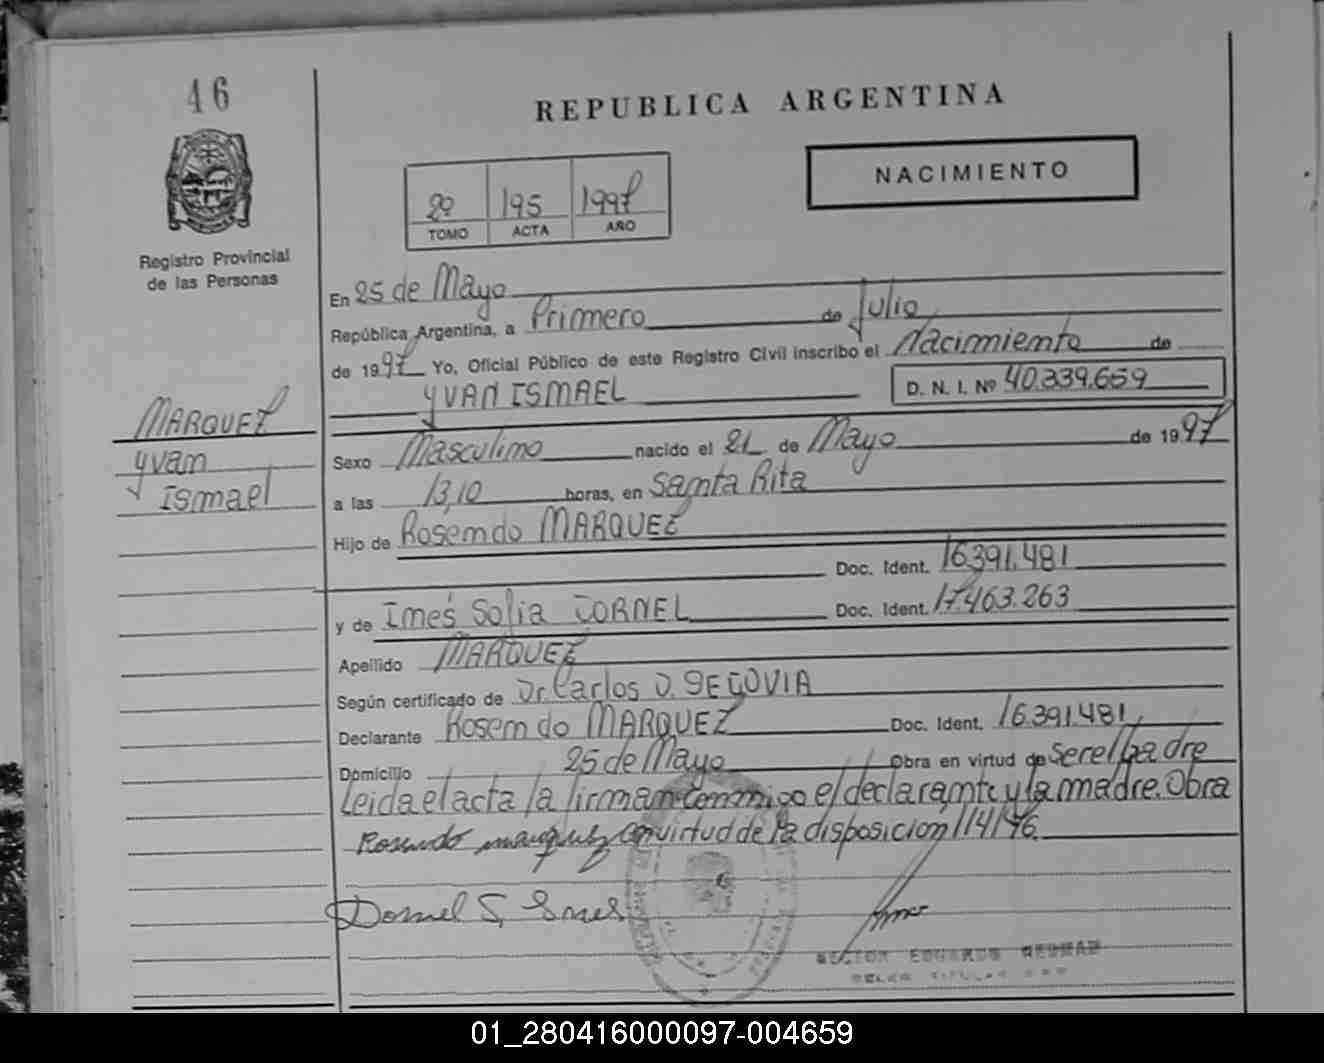 46
REPUBLICA ARGENTINA
NACIMIENTO
2º 195 1997
TOMO ACTA AÑO
Registro Provincial
de las Personas
En 25 de Mayo
República Argentina, a Primero de Julio
de 1997 Yo, Oficial Público de este Registro Civil inscribo el Nacimiento de
YVAN ISMAEL D. N. I. Nº 40.339.659
MARQUEZ
Yvan
Ismael
Sexo Masculino nacido el 21 de Mayo de 1997
a las 13,10 horas, en Santa Rita
Hijo de Rosendo MARQUEZ
Doc. Ident. 16.391.481
y de Inés Sofia CORNEL Doc. Ident. 17.463.263
Apellido MARQUEZ
Según certificado de Dr. Carlos D. SEGOVIA
Declarante Rosendo MARQUEZ Doc. Ident. 16.391.481
Domicilio 25 de Mayo Obra en virtud de Ser el Padre
Leida el acta la firman conmigo el declarante y la madre. Obra
Rosendo marquez en virtud de la disposicion 114/96.
Dornel S, Ines
HECTOR EDUARDO
01_280416000097-004659